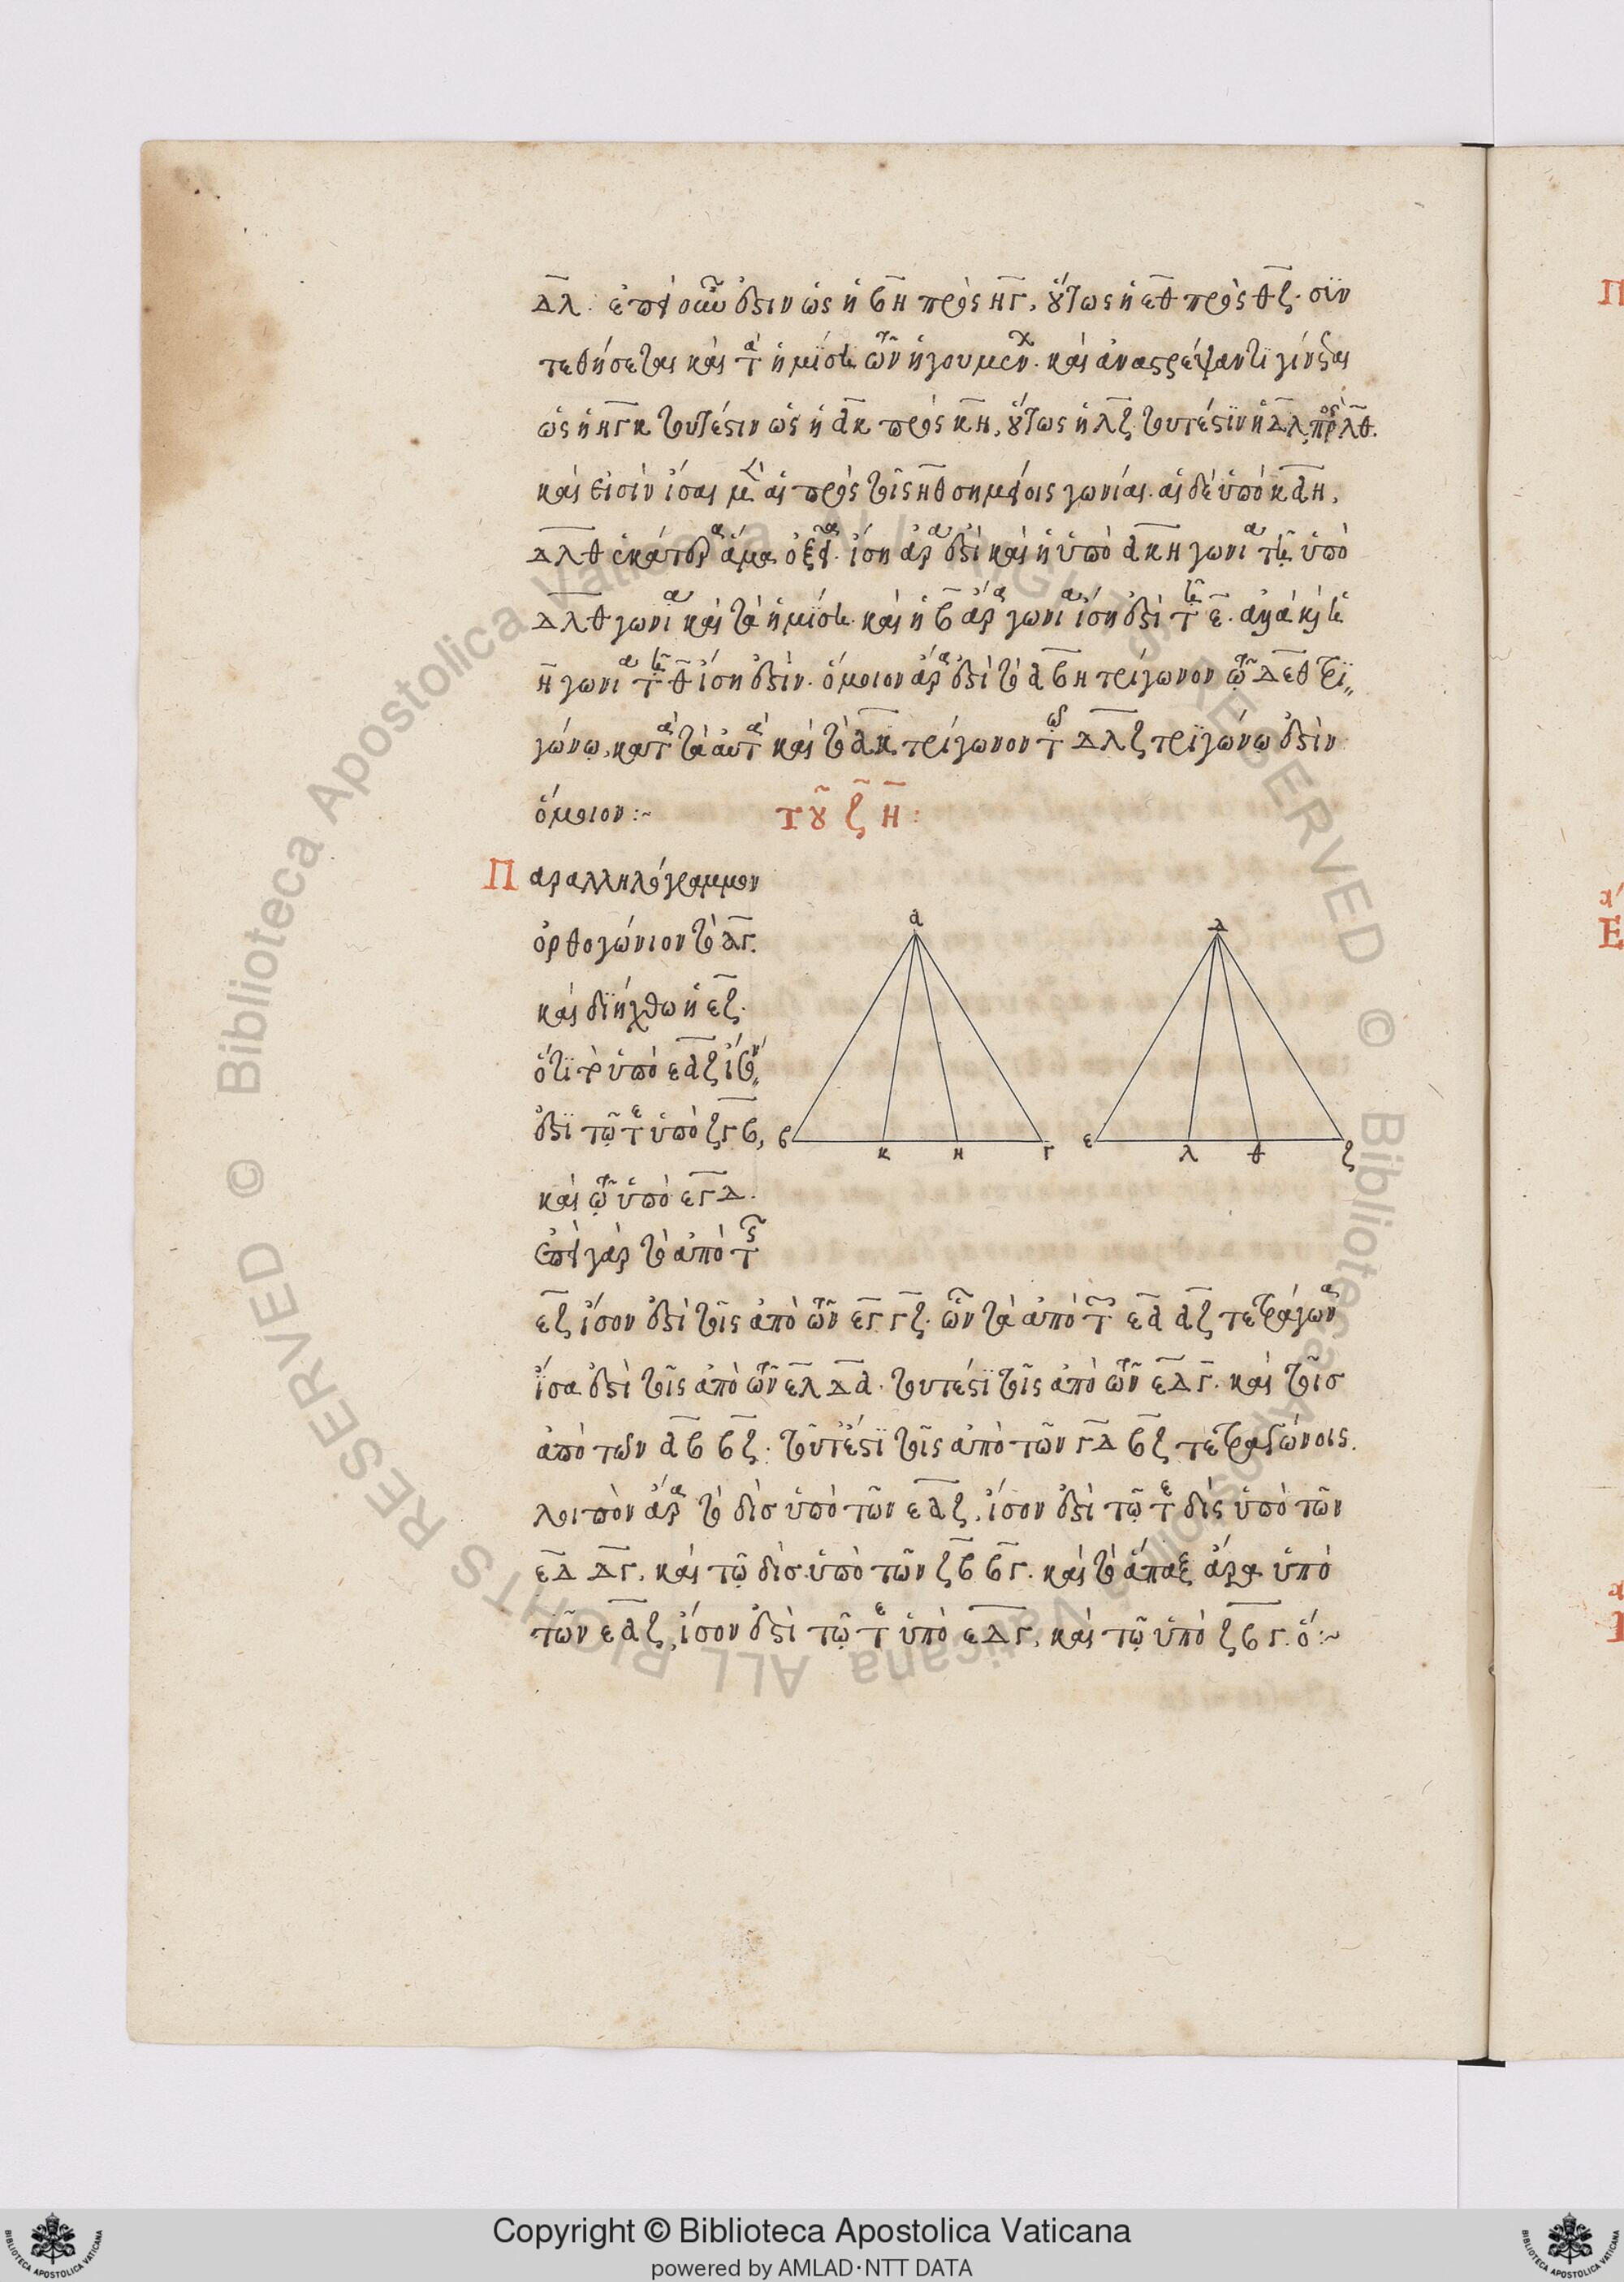 ΔΛ. ἐπεὶ οὖν ἐστιν ὡς ἡ ΒΗ πρὸς ΗΓ, οὕτως ἡ ΕΘ πρὸς ΘΖ· συν
τεθήσεται καὶ τὰ ἡμίση τῶν ἡγουμένων. καὶ ἀναστρέψαντι γίνεται
ὡς ἡ ΗΓΚ τουτέστιν ὡς ἡ ΑΚ πρὸς ΚΗ, οὕτως ἡ ΛΖ τουτέστιν ἡ ΔΛ πρὸς ΛΘ.
καὶ εἰσὶν ἴσαι μὲν αἱ πρὸς τοῖς ΗΘ σημείοις γωνίαι. αἱ δὲ ὑπὸ ΚΑΗ,
ΔΛΘ ἑκατέρα ἅμα ὀξεῖα. ἴση ἄρα ἐστὶ καὶ ἡ ὑπὸ ΑΚΗ γωνία τῇ ὑπὸ
ΔΛΘ γωνίᾳ καὶ τὰ ἡμίση. καὶ ἡ Β ἄρα γωνία ἴση ἐστὶ τῇ Ε. ἀλλὰ καὶ ἡ
Η γωνία τῇ Θ ἴση ἐστίν. ὅμοιον ἄρα ἐστὶ τὸ ΑΒΗ τρίγωνον τῷ ΔΕΘ τρι
γώνῳ, κατὰ τὰ αὐτὰ καὶ τὸ ΑΚ τρίγωνον τῷ ΔΛΖ τριγώνῳ ἐστὶν
ὅμοιον:~
τοῦ ζ η:
Παραλληλόγραμμον
ὀρθογώνιον τὸ ΔΓ.
καὶ διήχθω ἡ ΕΖ.
ὅτι τὸ ὑπὸ ΕΑΖ ἴσον
ἐστὶ τῷ τε ὑπὸ ΖΓΒ,
καὶ τῷ ὑπὸ ΕΓΔ.
ἐπεὶ γὰρ τὸ ἀπὸ τῆς
α Δ
β κ η Γ ε λ θ ζ
ΕΖ ἴσον ἐστὶ τοῖς ἀπὸ τῶν ΕΓ ΓΖ. ὧν τὰ ἀπὸ τῶν ΕΑ ΑΖ τετράγωνα
ἴσα ἐστὶ τοῖς ἀπὸ τῶν ΕΛ ΔΑ. τουτέστι τοῖς ἀπὸ τῶν ΕΔ Γ. καὶ τοῖσ
ἀπὸ τῶν ΑΒ ΒΖ. τουτέστι τοῖς ἀπὸ τῶν ΓΔ ΒΖ τετραγώνοις.
λοιπὸν ἄρα τὸ δὶσ ὑπὸ τῶν ΕΑΖ, ἴσον ἐστὶ τῷ τε δὶς ὑπὸ τῶν
ΕΔ ΔΓ, καὶ τῷ δὶσ ὑπὸ τῶν ΖΒ ΒΓ. καὶ τὸ ἅπαξ ἄρα ὑπὸ
τῶν ΕΑΖ, ἴσον ἐστὶ τῷ τε ὑπὸ ΕΔΓ, καὶ τῷ ὑπὸ ΖΒΓ. ὅ:~
© Biblioteca Apostolica Vaticana ALL RIGHTS RESERVED © Biblioteca Apostolica Vaticana ALL RIGHTS RESERVED
Copyright © Biblioteca Apostolica Vaticana
powered by AMLAD·NTT DATA